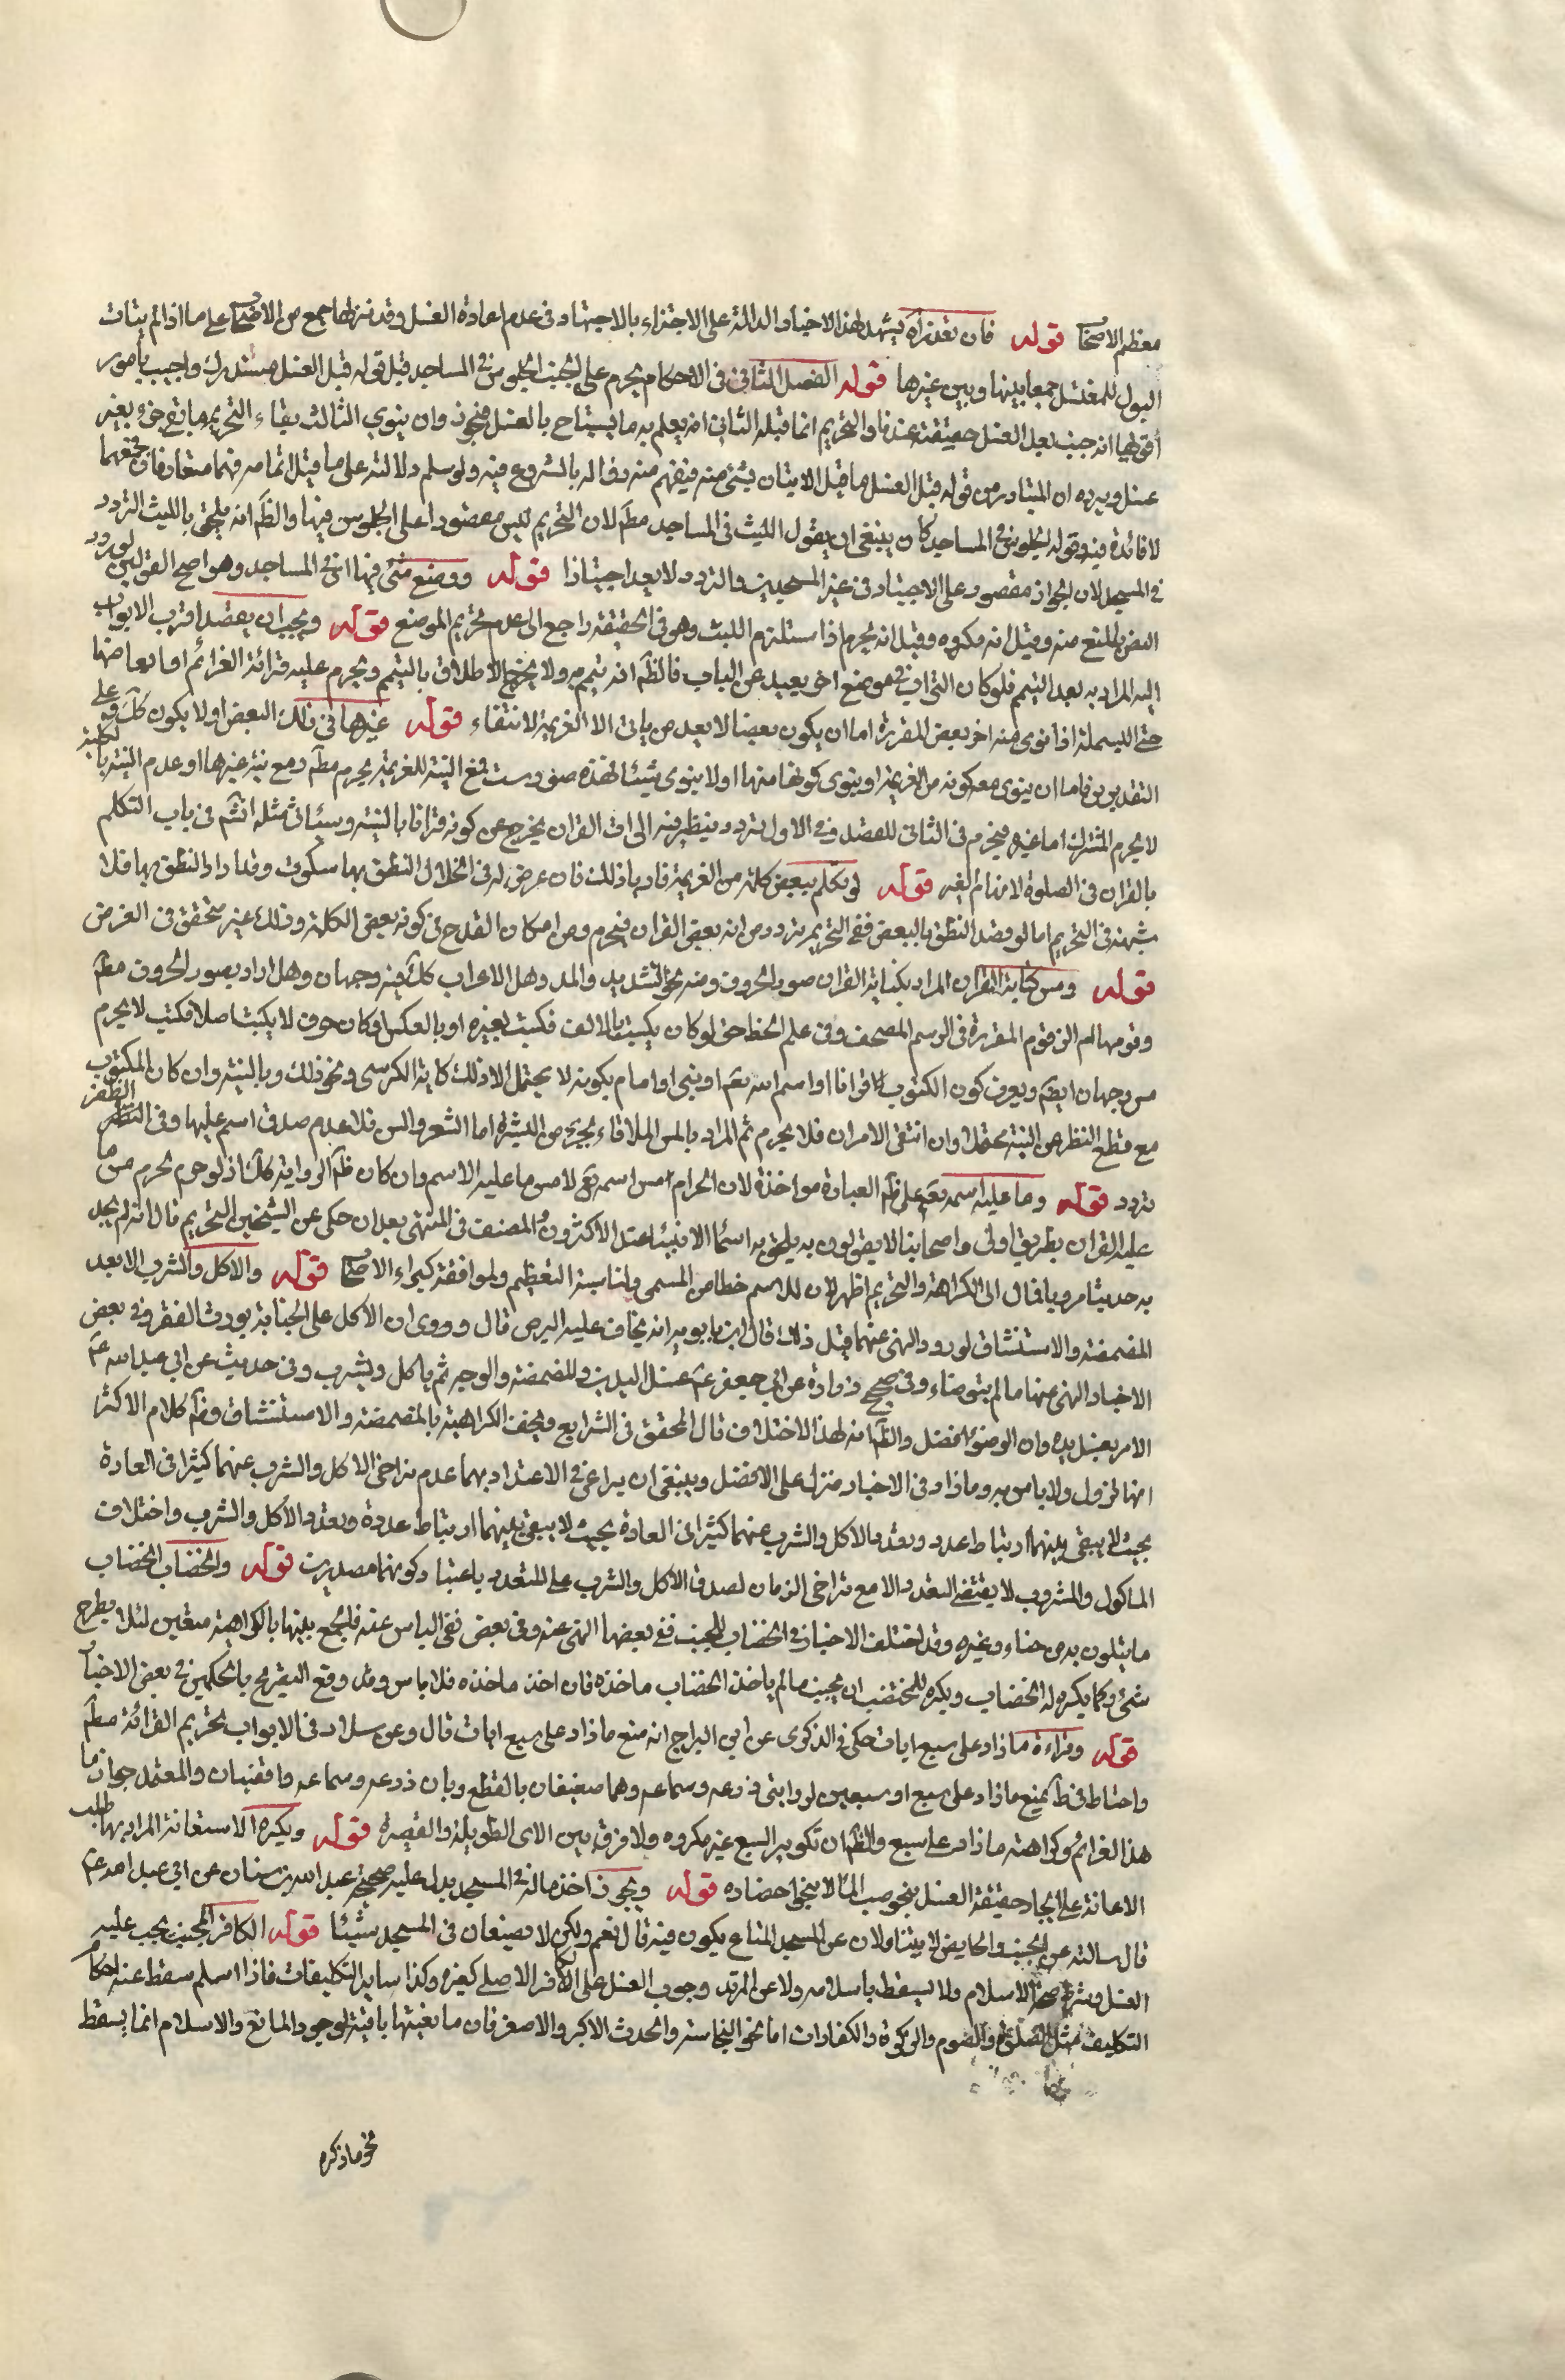 معظم الاصحاب قوله فان تعذر اه يشهد لهذا الاخبار الدالة على الاجتزاء بالاجتهاد فى عدم اعادة الغسل وقد نزلها جمع من الاصحاب على ما اذا لم يتات
البول للمغتسل جمعا بينها وبين غيرها قوله الفصل الثانى فى الاحكام يحرم على الجنب الجلوس فى المساجد قيل قوله قبل الغسل مستدرك واجيب بامور
أقولها انه جنب بعد الغسل حقيقة عندنا والتحريم انما قبله الثانى انه يعلم به ما يستباح بالغسل فيجوز وان ينوى الثالث بقاء التحريم ما بقى جزء بغير
غسل ويرده ان المتبادر من قوله قبل الغسل ما قبل الاتيان بشئ منه فيفهم منه زواله بالشروع فيه ولو سلم دلالته على ما قبل اتمامه فهما متغايرفان
لا فائدة فيه وقوله الجلوس فى المساجد كان ينبغى ان يقول اللبث فى المساجد مطم لان التحريم ليس مقصورا على الجلوس فيها والظم انه يلحق باللبث التردد
فى المسجد لان الجواز مقصور على الاجتياز فى غير المسجدين والتردد لا يعد اجتيازا قوله ووضع شئ فيها اى فى المساجد وهو اصح القولين لورود
النص بالمنع منه وقيل انه مكروه وقيل انه يحرم اذا استلزم اللبث وهو فى الحقيقة راجع الى عدم تحريم الموضع قوله ويجب ان يقصد اقرب الابواب
اليه المراد به بعد التيمم فلو كان التراب فى موضع اخر بعيد عن الباب فالظم انه تيمم به ولا يخرج الاطلاق بالتيمم ويحرم عليه قرائة العزائم او ابعاضها
حتى البسملة اذا نوى منه اخر بعض المقررة اما ان يكون بعضا لا يعد من باقى الا العزيمة لانتفاء قوله غيرها فى ذلك البعض او لا يكون كك وعلى
التقديرين فاما ان ينوى معه كونه من العزيمة او ينوى كونها منها او لا ينوى شيئا فهذه صور ست فمع النية للعزيمة يحرم مطم ومع نية غيرها او عدم النية بالكلية
لا يحرم المشترك اما غيره فيحرم فى الثانى للقصد وفى الاول تردد ينظر فيه الى ان القران يخرج عن كونه قرانا بالنية وسيأتى مثله انشم فى باب التكلم
بالقران فى الصلوة لافهام الغير قوله لو تكلم ببعض كلمة من العزيمة قاصدا ذلك فان عرض له فى الخلال النطق بها سكوت وقد اراد النطق بها فلا
شبهة فى التحريم اما لو قصد النطق بالبعض ففى التحريم تردد من انه بعض القران فيحرم ومن امكان القدح فى كونه بعض الكلمة وذلك غير متحقق فى الغرض
قوله ومس كتابة القران المراد بكتابة القران صور الحروف ومنه نحو التشديد والمد وهل الاعراب كك فيه وجهان وهل اراد بصور الحروف مطم
ورقومها ام الرقوم المقررة فى الرسم المصحف وفى علم الخط حتى لو كان يكتب بالالف فكتب بغيره او بالعكس او كان حرف لا يكتب اصلا فكتب لا يحرم
مس وجهان ايضم ويعرف كون المكتوب قرانا او اسم الله تعم او نبى او امام بكونه لا يحتمل الا ذلك كاية الكرسى ونحو ذلك وبالنية وان كان المكتوب
مع قطع النظر عن النية محتملا وان انتفى الامران فلا يحرم ثم المراد بالمس الملاقاة بجزء من البشرة اما الشعر والسن فلا لعدم صدق اسم عليها وفى الظفر
تردد قوله وما عليه اسمه تعم على ظم العبارة مواخذة لان الحرام مس اسمه تع لا مس ما عليه الاسم وان كان ظم الرواية كك اذ لو حرم لحرم مس ما
عليه القران بطريق اولى واصحابنا لا يقولون به يلحق به اسماء الانبياء عند الاكثرون المصنف فى المنتهى بعد ان حكى عن الشيخين التحريم قال انه لم يجد
به حديثا مرويا فال الى الكراهة والتحريم اظهر لان للاسم خطا من المسمى ولمناسبة التعظيم ولموافقة كبراء الاصحاب قوله والاكل والشرب الا بعد
المضمضة والاستنشاق لورود النهى عنهما قبل ذلك قال ابن بابويه انه يخاف عليه البرص قال وروى ان الاكل على الجنابة يورث الفقر وفى بعض
الاخبار النهى عنهما ما لم يتوضاء وفى صحيح زرارة عن ابى جعفر عم غسل اليدين والمضمضة والوجه ثم ياكل ويشرب وفى حديث عن ابى عبد الله عم
الامر بغسل يده وان الوضوء افضل والظم انه لهذا الاختلاف قال المحقق فى الشرايع ويخف الكراهية بالمضمضة والاستنشاق وظم كلام الاكثر
انها تزول ولا باس به وما زاد فى الاخبار منزل على الافضل وينبغى ان يراعى فى الاعتداد بهما عدم تراخى الاكل والشرب عنهما كثيرا فى العادة
بحيث لا يبقى بينهما ارتباط عدد وتعدد الاكل والشرب عنهما كثيرا فى العادة بحيث لا يبقى بينهما ارتباط عددة وتعدد الاكل والشرب واختلاف
الماكول والمشروب لا يقتضى التعدد الا مع تراخى الزمان لصدق الاكل والشرب على المتعدد باعتبار كونهما مصدرين قوله والخضاب الخضاب
ما يتلون به من حناء وغيره وقد اختلف الاخبار فى الخضاب للجنب ففى بعضها النهى عنه وفى بعض نفى الباس عنه فالجمع بينهما بالكراهية متعين لئلا يطرح
شئ وكما يكره له الخضاب ويكره للمختضب ان يجنب ما لم ياخذ الخضاب ماخذه فان اخذ ماخذه فلا باس وقد وقع التصريح بالحكمين فى بعض الاخبار
قوله وقراءة ما زاد على سبع ايات حكى فى الذكرى عن ابن البراج انه منع ما زاد على سبع ايات قال وعن سلار فى الابواب تحريم القرائة مطم
واحتاط فى ط بمنع ما زاد على سبع او سبعين لروايتى زرعه وسماعه وهما ضعيفان بالقطع وبان زرعه وسماعه واقفيان والمعتمد جواز ما
هذا العزائم وكراهة ما زاد على سبع والظم ان تكرير السبع غير مكروه ولا فرق بين الاى الطويلة والقصيرة قوله ويكره الاستعانة المراد بها طلب
الاعانة على ايجاد حقيقة الغسل بنحو صب الماء لا بنحو احضاره قوله ويجوز اخذ ماله فى المسجد يدل عليه صحيحة عبد الله بن سنان عن ابى عبد الله عم
قال سالته عن الجنب والحايض يتناولان عن المسجد المتاع يكون فيه قال نعم ولكن لا يضعان فى المسجد شيئا قوله الكافر الجنب يجب عليه
الغسل وشرط صحته الاسلام ولا يسقط باسلامه ولا عن المرتد وجوب الغسل على الكافر الاصلى كغيره وكذا ساير التكليفات فاذا اسلم سقط عنه احكام
التكليف مثل الصلوة والصوم والزكوة والكفارات اما نحو النجاسة والحدث الاكبر والاصغر فان مانعيتها باقية لوجود المانع والاسلام انما يسقط
نحو ما ذكره